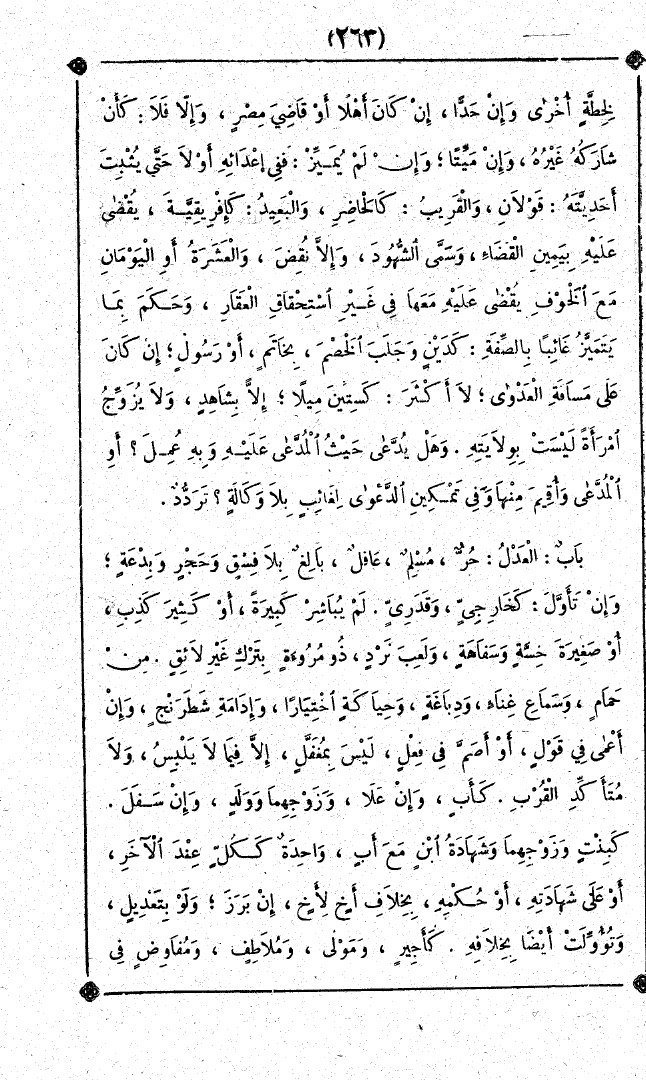 (٢٦٣)
لِخِطَّةٍ أُخْرٰى وَإِنْ حَدًّا ، إِنْ كَانَ أَهْلًا أَوْ قَاضِيَ مِصْرٍ ، وَإِلَّا فَلَا : كَأَنْ
شَارَكَهُ غَيْرُهُ ، وَإِنْ مَيِّتًا ؛ وَإِنْ لَمْ يُمَيِّزْ : فَفِي إِعْدَائِهِ أَوْ لَا حَتَّى يُثْبِتَ
أَحَدِيَّتَهُ : قَوْلَانِ ، وَالْقَرِيبُ : كَالْحَاضِرِ ، وَالْبَعِيدُ : كَإِفْرِيقِيَّةَ ، يُقْضٰى
عَلَيْهِ بِيَمِينِ الْقَضَاءِ ، وَسَمَّى الشُّهُودَ ، وَإِلَّا نُقِضَ ، وَالْعَشَرَةُ أَوِ الْيَوْمَانِ
مَعَ الْخَوْفِ يُقْضٰى عَلَيْهِ مَعَهَا فِي غَيْرِ اسْتِحْقَاقِ الْعَقَارِ ، وَحَكَمَ بِمَا
يَتَمَيَّزُ غَائِبًا بِالصِّفَةِ : كَدَيْنٍ وَجَلَبَ الْخَصْمَ ، بِخَاتَمٍ ، أَوْ رَسُولٍ ؛ إِنْ كَانَ
عَلَى مَسَافَةِ الْعَدْوٰى ؛ لَا أَكْثَرَ : كَسِتِّينَ مِيلًا ؛ إِلَّا بِشَاهِدٍ ، وَلَا يُزَوِّجُ
امْرَأَةً لَيْسَتْ بِوِلَايَتِهِ . وَهَلْ يُدَّعٰى حَيْثُ الْمُدَّعٰى عَلَيْهِ وَبِهِ عُمِلَ ؟ أَوِ
الْمُدَّعٰى وَأُقِيمَ مِنْهَا وَفِي تَمْكِينِ الدَّعْوٰى لِغَائِبٍ بِلَا وَكَالَةٍ ؟ تَرَدُّدٌ .
بَابٌ : الْعَدْلُ : حُرٌّ ، مُسْلِمٌ ، عَاقِلٌ ، بَالِغٌ بِلَا فِسْقٍ وَحَجْرٍ وَبِدْعَةٍ ؛
وَإِنْ تَأَوَّلَ : كَخَارِجِيٍّ ، وَقَدَرِيٍّ . لَمْ يُبَاشِرْ كَبِيرَةً ، أَوْ كَثِيرَ كَذِبٍ ،
أَوْ صَغِيرَةَ خِسَّةٍ وَسَفَاهَةٍ ، وَلَعِبَ نَرْدٍ ، ذُو مُرُوءَةٍ بِتَرْكِ غَيْرِ لَائِقٍ . مِنْ
حَمَامٍ ، وَسَمَاعِ غِنَاءٍ ، وَدِبَاغَةٍ ، وَحِيَاكَةٍ اخْتِيَارًا ، وَإِدَامَةِ شَطَرَنْجٍ ، وَإِنْ
أَعْمٰى فِي قَوْلٍ ، أَوْ أَصَمَّ فِي فِعْلٍ ، لَيْسَ بِمُغَفَّلٍ ، إِلَّا فِيمَا لَا يَلْبِسُ ، وَلَا
مُتَأَكِّدِ الْقُرْبِ . كَأَبٍ ، وَإِنْ عَلَا ، وَزَوْجِهِمَا وَوَلَدٍ ، وَإِنْ سَفَلَ .
كَبِنْتٍ وَزَوْجِهِمَا وَشَهَادَةُ ابْنٍ مَعَ أَبٍ ، وَاحِدَةٌ كَكُلٍّ عِنْدَ الْآخَرِ ،
أَوْ عَلَى شَهَادَتِهِ ، أَوْ حُكْمِهِ ، بِخِلَافِ أَخٍ لِأَخٍ ، إِنْ بَرَزَ ؛ وَلَوْ بِتَعْدِيلٍ ،
وَتُؤُوِّلَتْ أَيْضًا بِخِلَافِهِ . كَأَجِيرٍ ، وَمَوْلٰى ، وَمُلَاطِفٍ ، وَمُفَاوِضٍ فِي